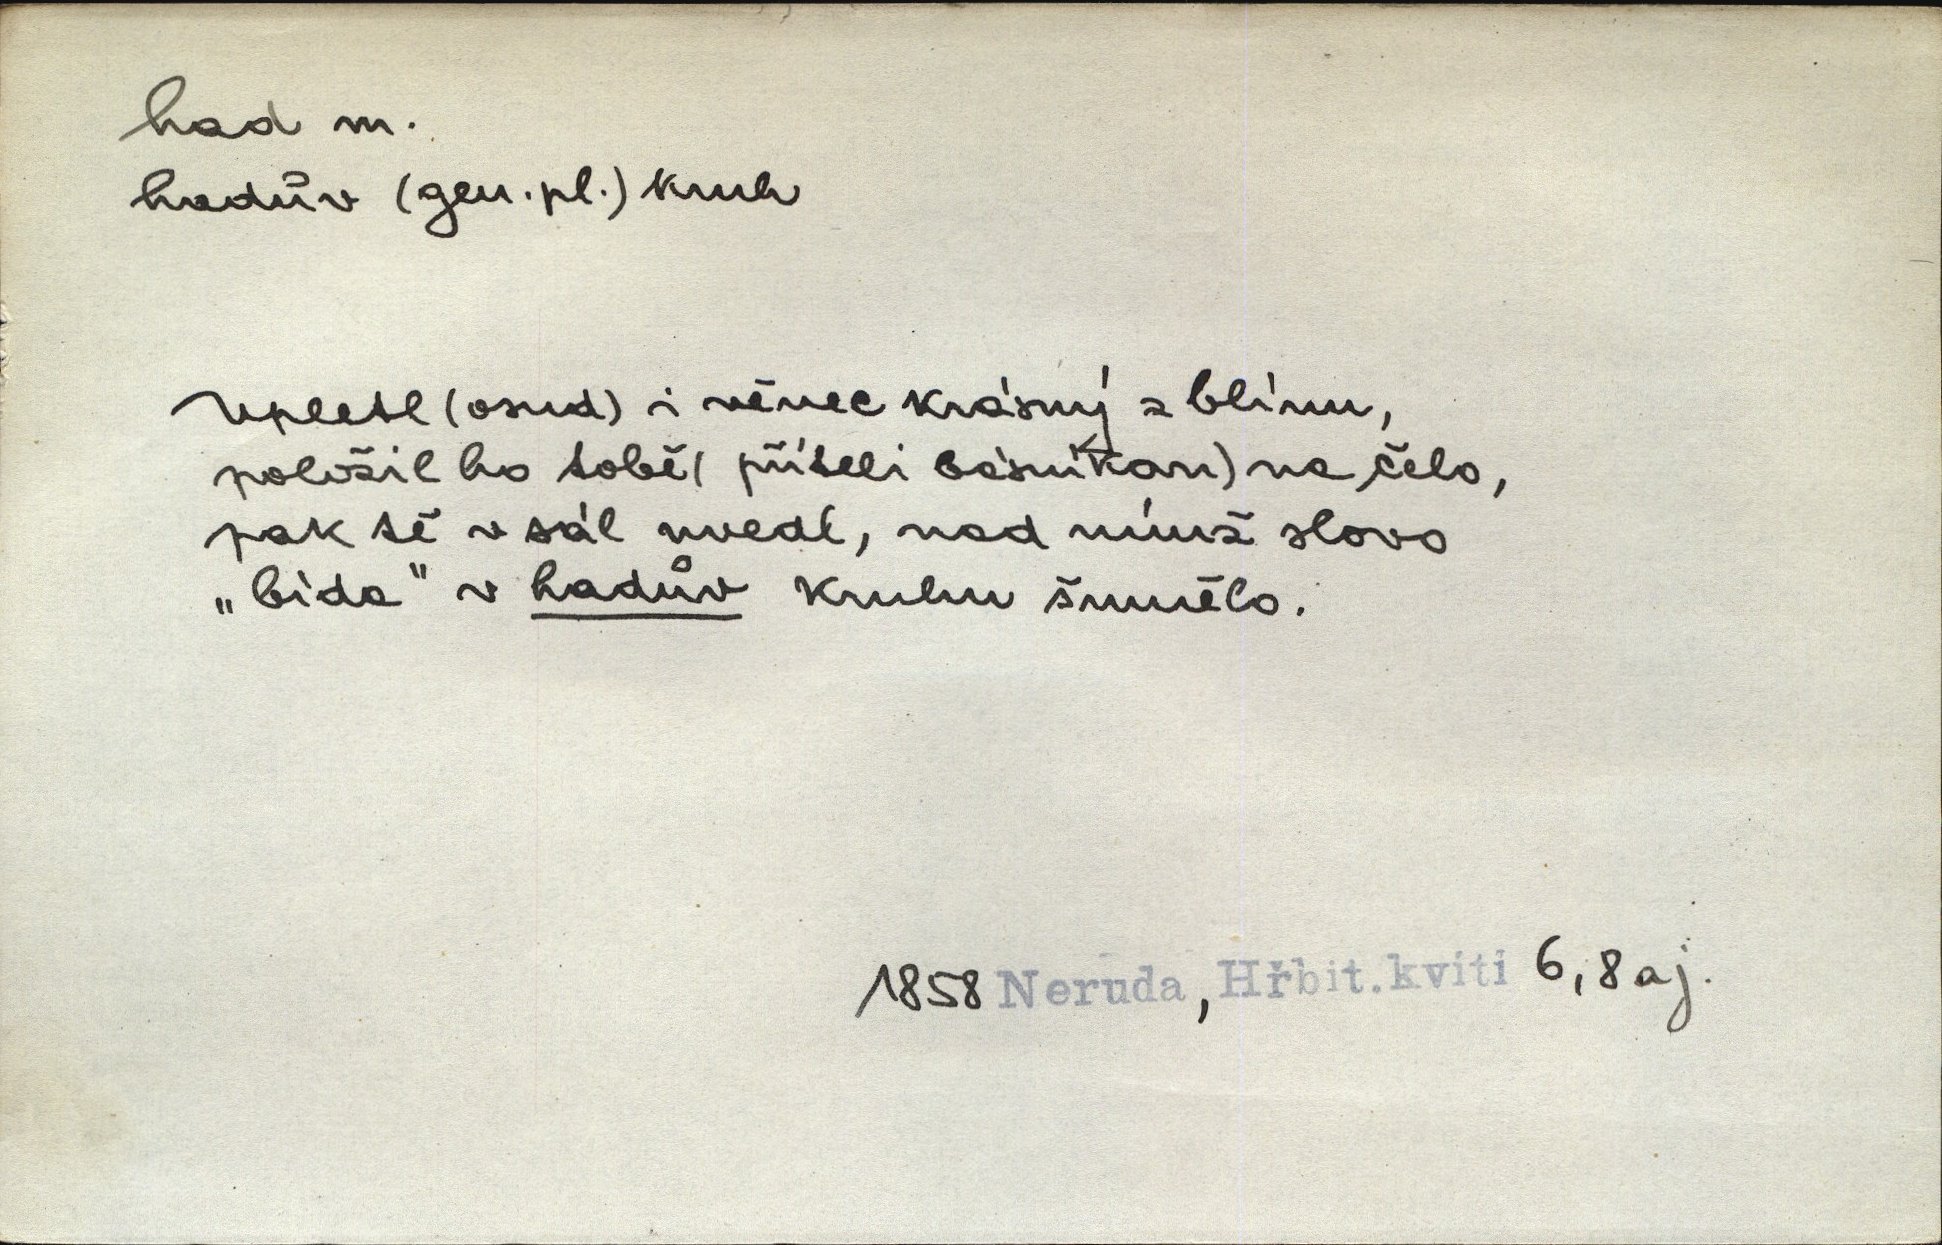 had m.
hadův (gen. pl.) kruh
Upletl (osud) i věnec krásný z blínu,
položil ho tobě (příteli básníkovu) na čelo,
pak tě v sál uvedl, nad nímž slovo
„bída" v hadův kruhu šumělo.
1858 Neruda, Hřbit. kvítí 6, 8 aj.